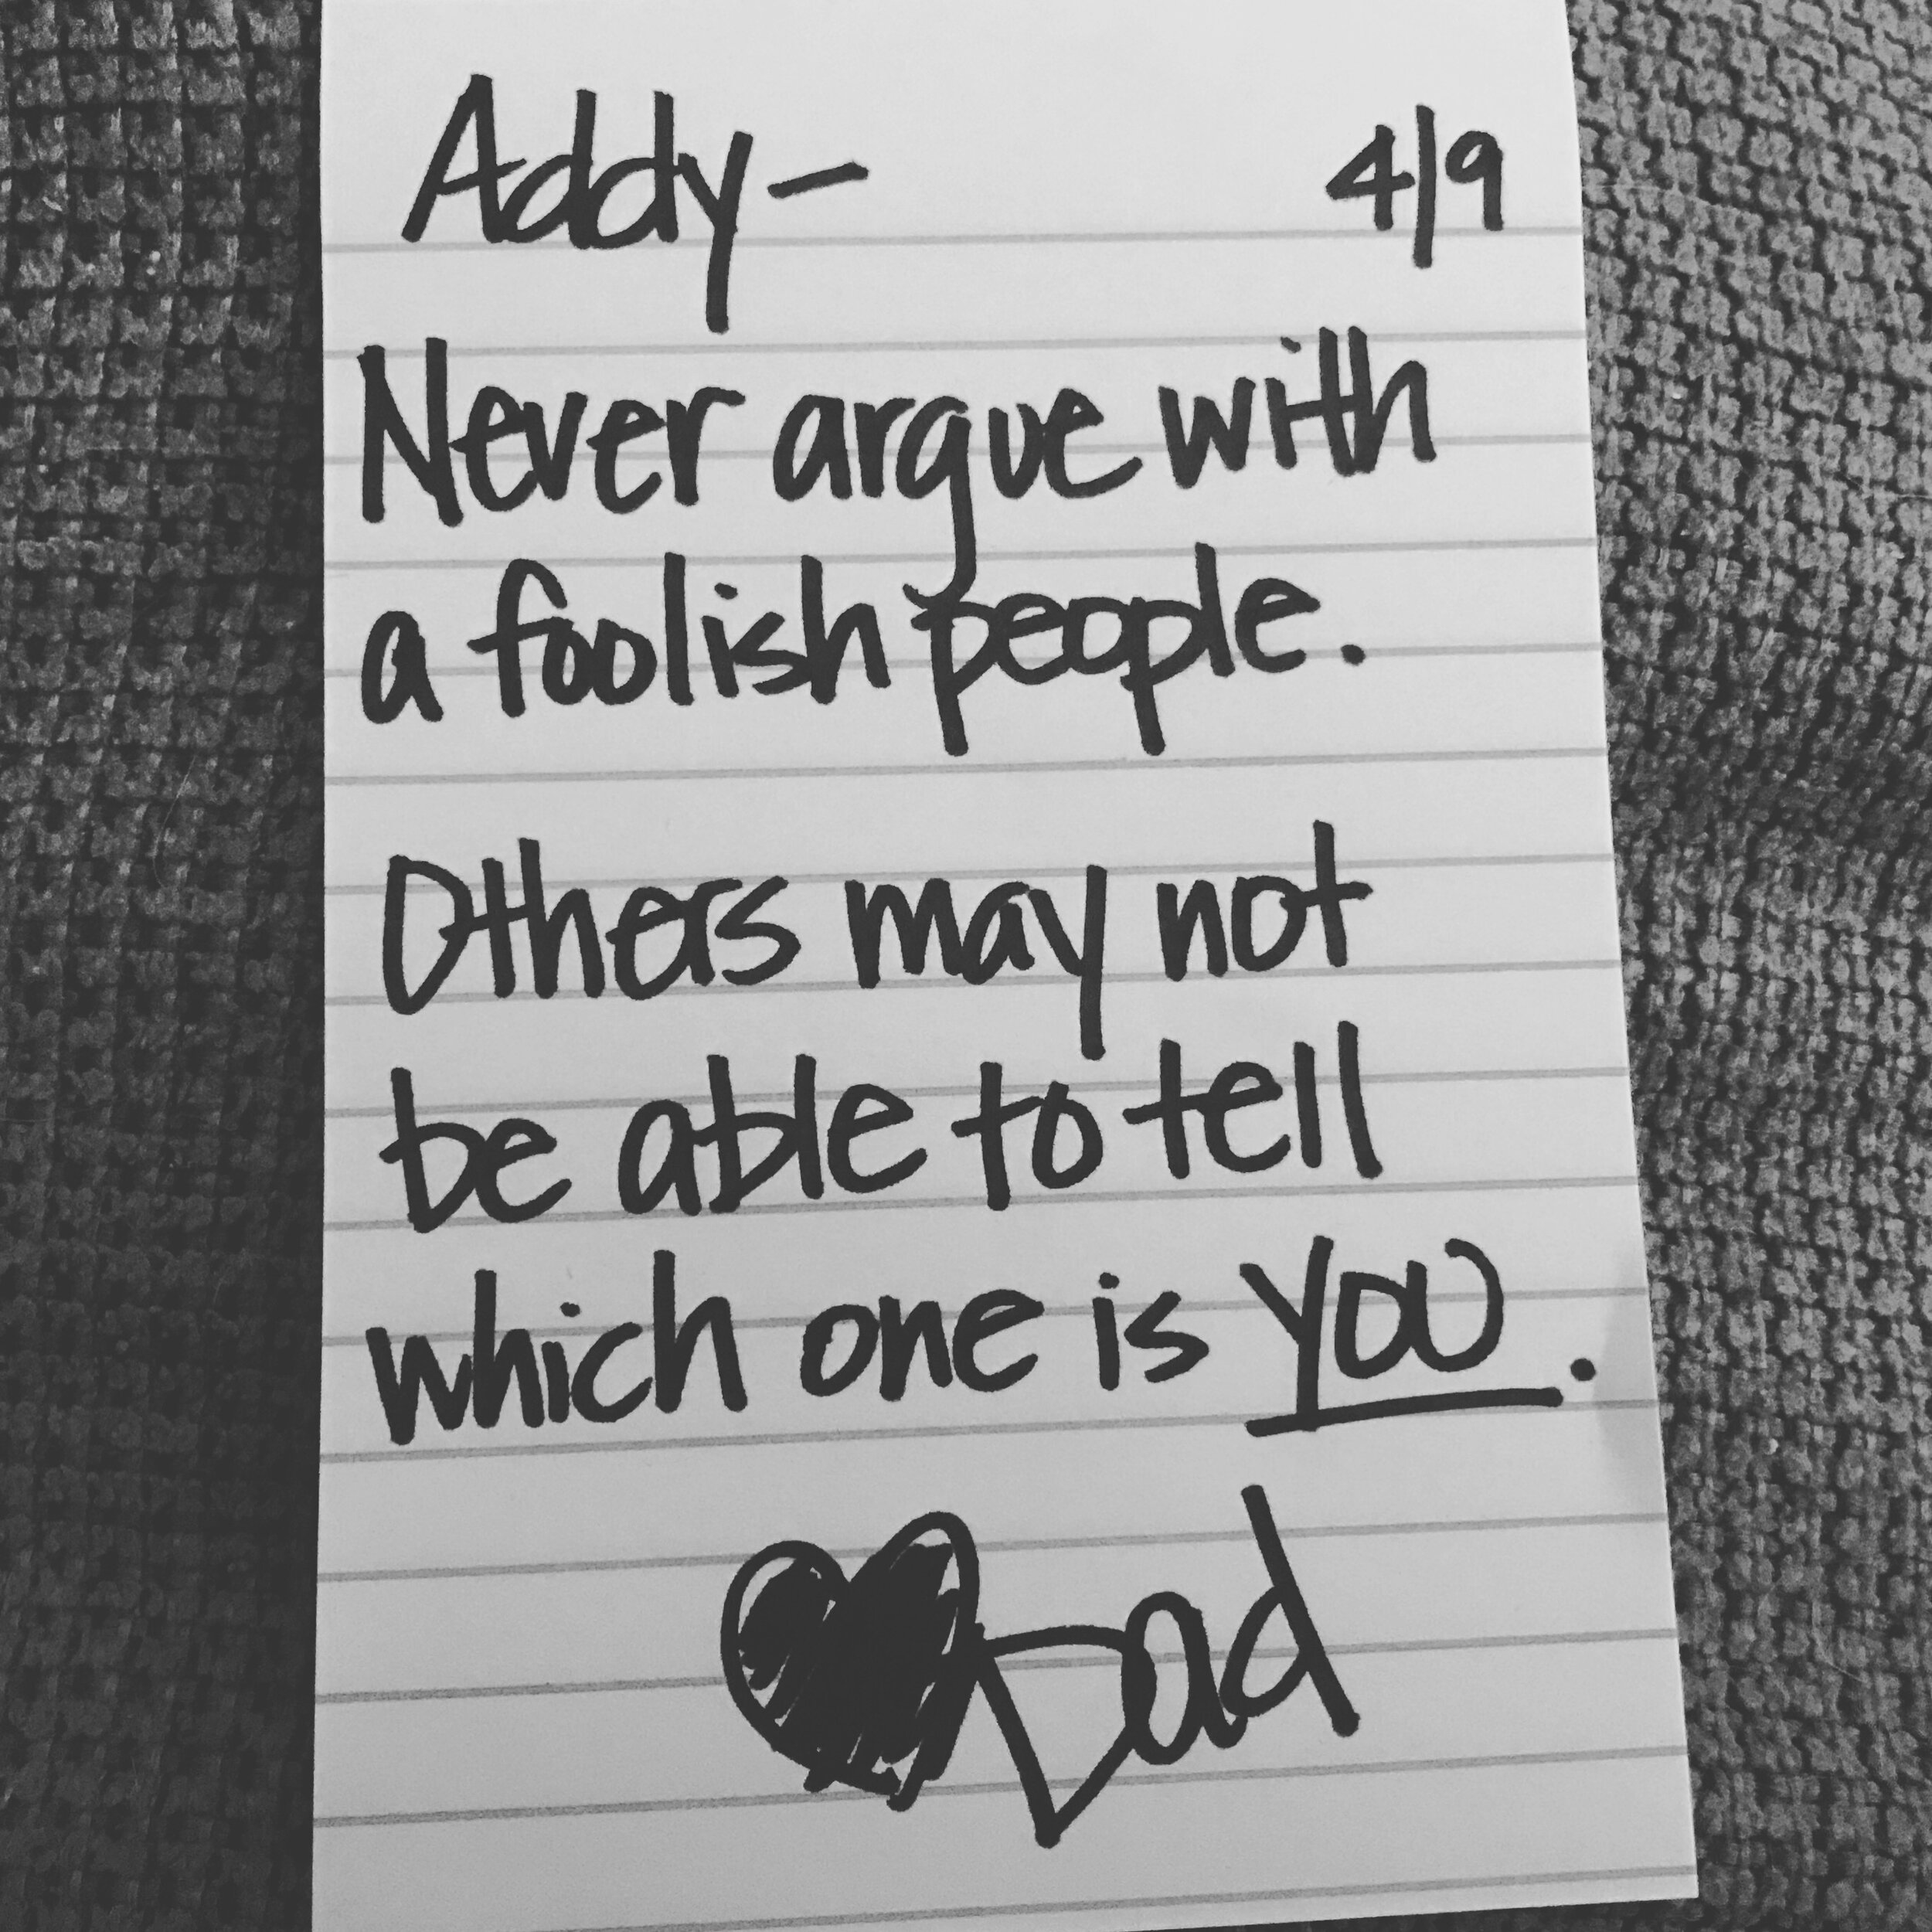 Addy- 4/9
Never argue with
a foolish people.
Others may not
be able to tell
which one is YOU.
Dad